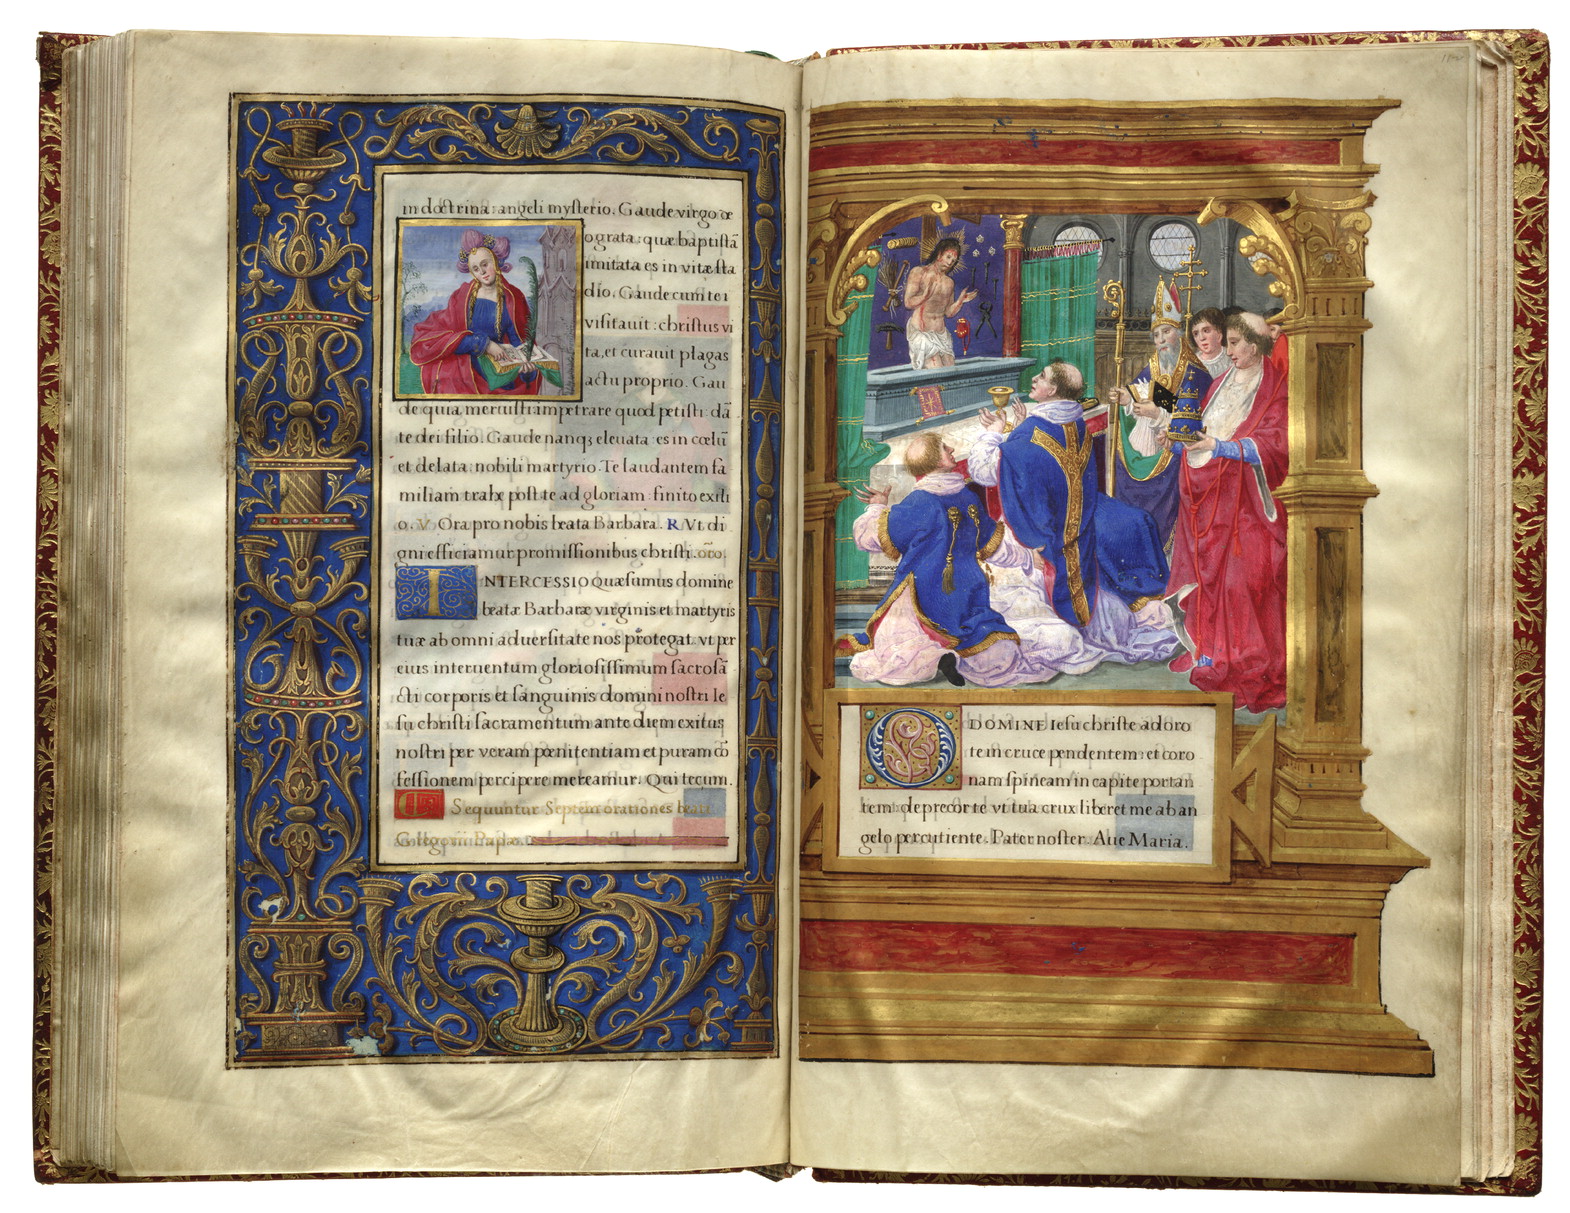 in doctrina: angeli mysterio. Gaude virgo œ
o grata: quæ baptistā
imitata es in vitæ sta
dio. Gaude cum te i
visitauit: christus vi
ta, et curauit plagas
actu proprio. Gau
de quia meruisti impetrare quod petisti: dā
te dei filio. Gaude nanq; eleuata es in cœlū
et delata nobili martyrio. Te laudantem fa
miliam trahe post te ad gloriam finito exili
o. V Ora pro nobis beata Barbara. R Vt di
gni efficiamur promissionibus christi. oro.
INTERCESSIO Quæsumus domine
beatæ Barbaræ virginis et martyris
tuæ ab omni aduersitate nos protegat. vt per
eius interuentum gloriosissimum sacrosā
cti corporis et sanguinis domini nostri Ie
su christi sacramentum ante diem exitus
nostri per veram pœnitentiam et puram cō
fessionem percipere mereamur. Qui tecum.
Sequuntur Septem orationes beati
Gregorii Papæ.
O DOMINE Iesu christe adoro
te in cruce pendentem et coro
nam spineam in capite portan
tem deprecor te vt tua crux liberet me ab an
gelo percutiente. Pater noster. Aue Maria.